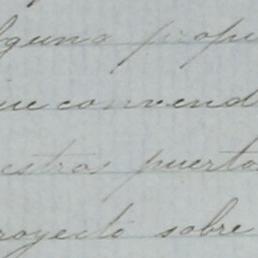 lguna prop
ue convend
estros puerto
royecto sobre